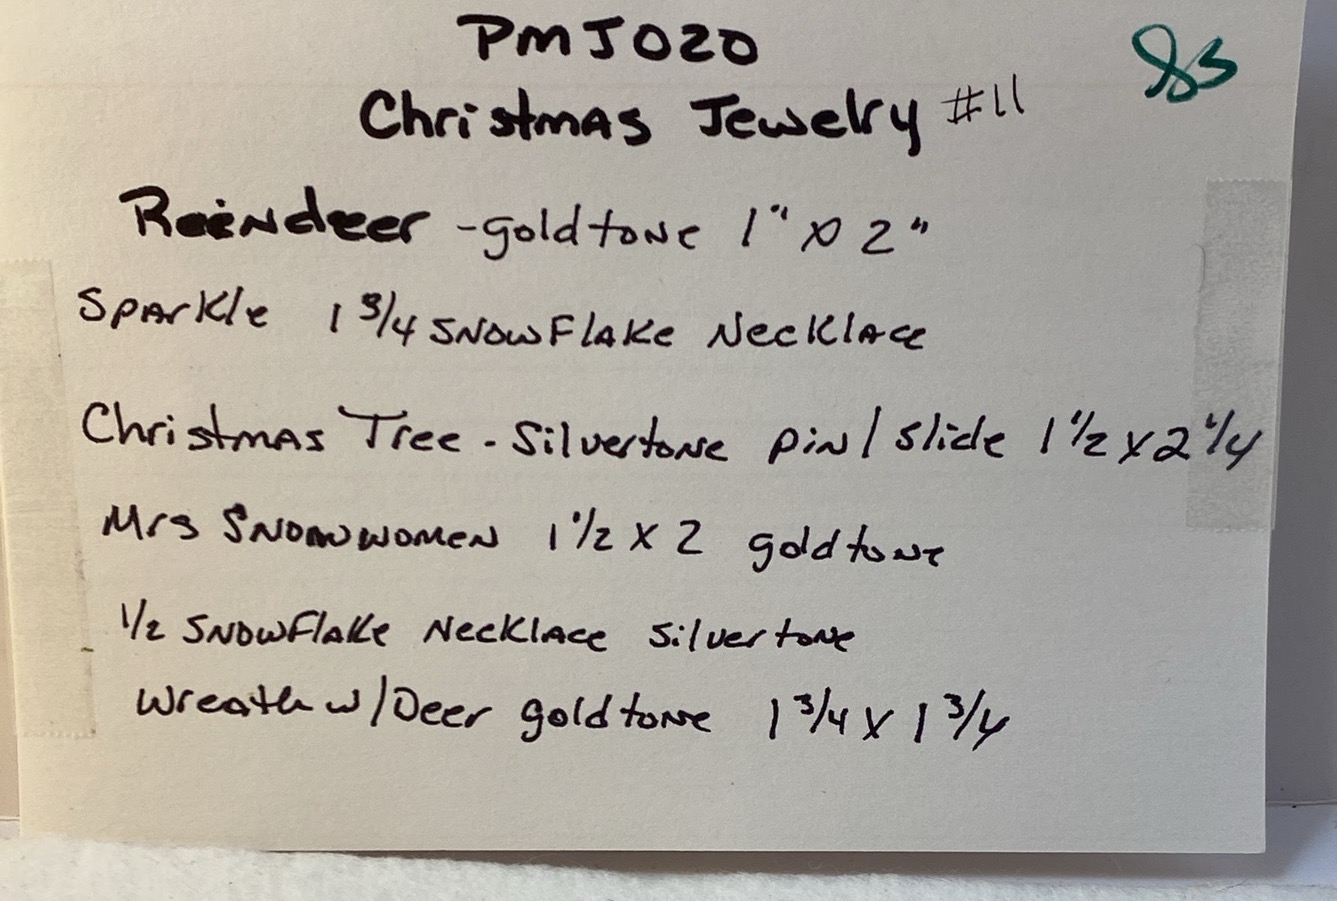 PMJ020
Christmas Jewelry #11
Reindeer - goldtone 1" x 2"
Sparkle 1 3/4 Snowflake Necklace
Christmas Tree - Silvertone pin/slide 1 1/2 x 2 1/4
Mrs Snowwomen 1 1/2 x 2 goldtone
1/2 Snowflake Necklace silvertone
Wreath w/Deer goldtone 1 3/4 x 1 3/4